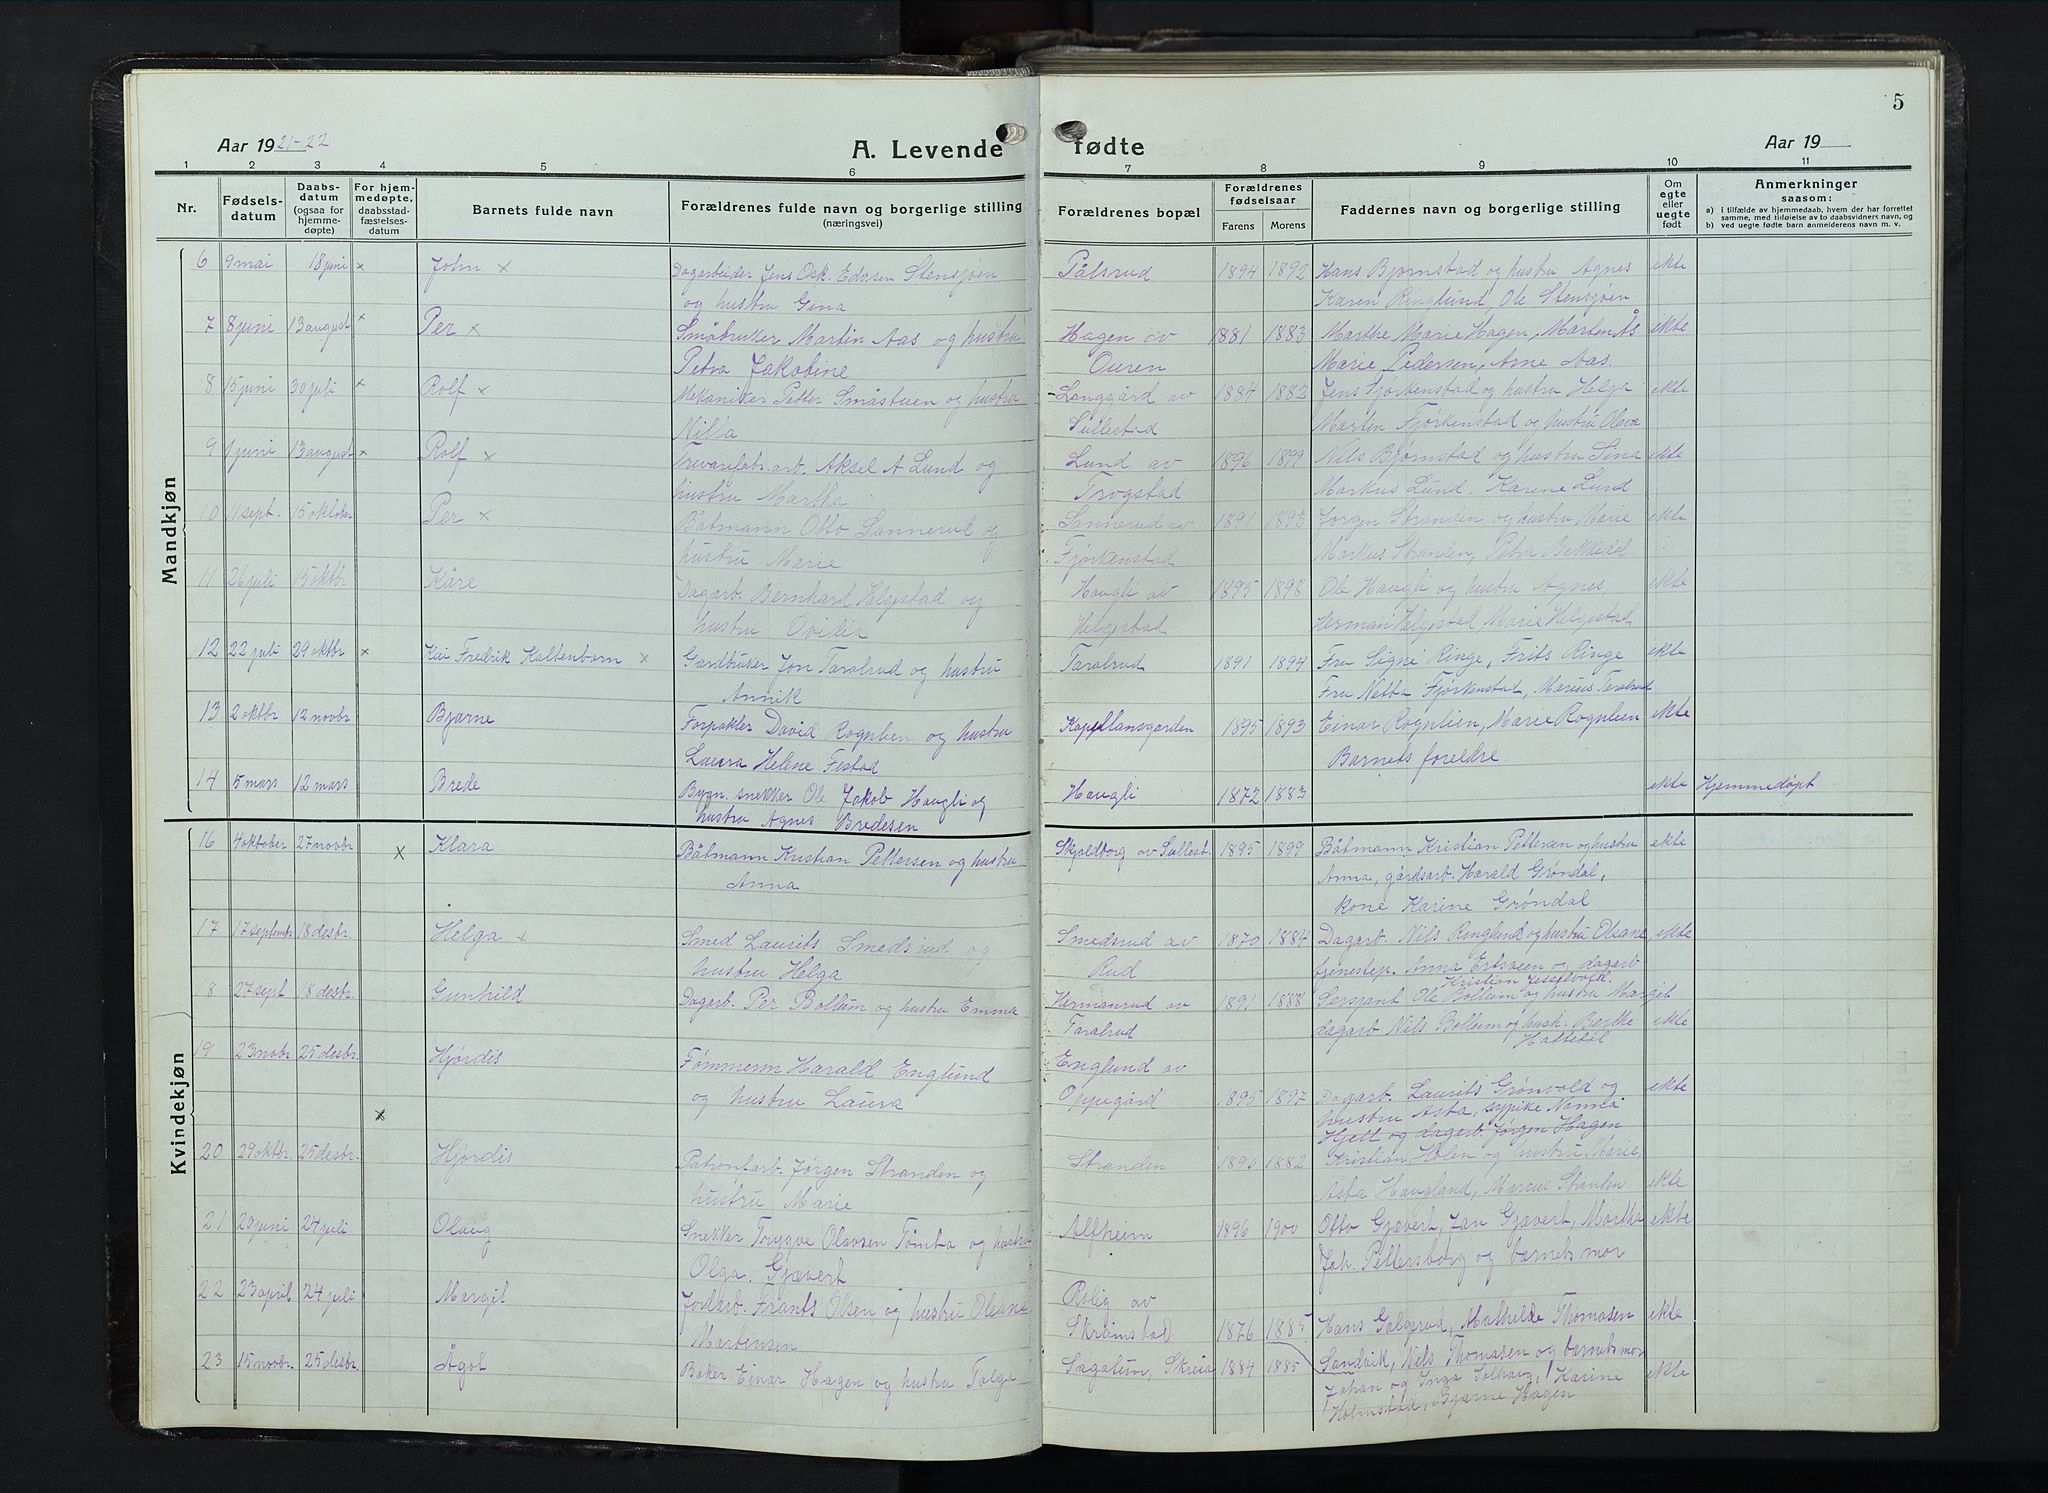 5
Aar 1921-22
A. Levende fødte
Aar 19
1 2 3 4 5 6 7 8 9 10 11
Nr.
Fødselsdatum
Daabsdatum (ogsaa for hjemmedøpte)
For hjemmedøpte, daabsstadfæstelsesdatum
Barnets fulde navn
Forældrenes fulde navn og borgerlige stilling (næringsvei)
Forældrenes bopæl
Forældrenes fødselsaar
Farens Morens
Faddernes navn og borgerlige stilling
Om egte eller uegte født
Anmerkninger saasom:
a) i tilfælde av hjemmedaab, hvem der har forrettet samme, med tilføielse av to daabsvidners navn, og
b) ved uegte fødte barn anmelderens navn m. v.
Mandkjøn
6 9 mai 18 juni x John x Dagarbeider Jens Osk. Edvsen Stensjøen Pålsrud 1894 1892 Hans Bjørnstad og hustru Agnes ekte
og hustru Gina Karen Ringlund, Ole Stensjøen
7 8 juni 13 august x Per x Småbruker Martin Aas og hustru Hagen av 1881 1883 Marthe Marie Hagen, Marten Ås ekte
Petra Jakobine Ouren Marie Pedersen, Arne Aas.
8 15 juni 30 juli x Rolf x Mekaniker Petter Småstuen og hustru Langgård av 1884 1883 Jens Fjørkenstad og hustru Helga ekte
Nilla Sillestad Martin Fjørkenstad og hustru Olava
9 1 juni 13 august x Rolf x Trevarefabr.arb. Aksel A Lund og Lund av 1896 1899 Nils Bjørnstad og hustru Sina ekte
hustru Martha Trogstad Markus Lund, Karene Lund
10 11 sept. 15 oktober Per x Båtmann Otto Sannerud og Sannerud av 1891 1893 Jørgen Stranden og hustru Marie ekte
hustru Marie Fjørkenstad Markus Stranden, Petra Bekkedal
11 26 juli 15 oktbr Kåre Dagarb. Bernhard Helgestad og Haugli av 1895 1898 Ole Haugli og hustru Agnes, ekte
hustru Ovidie Helgestad Herman Helgestad, Marie Helgestad
12 22 juli 29 oktbr x Kai Fredrik Kaltenborn x Gardbruker Jon Taralrud og hustru Taralrud 1891 1894 Fru Signi Ringe, Frits Ringe ekte
Annik Fru Netta Fjørkenstad, Marius Taralrud
13 2 oktbr 12 novbr Bjarne Forpakter David Rognlien og hustru Kapellansgarden 1895 1893 Einar Rognlien, Marie Rognlien ekte
Laura Helene Festad Barnets foreldre
14 5 mars 12 mars Brede Bygn. snekker Ole Jakob Haugli og Haugli 1872 1883 ekte Hjemmedøpt
hustru Agnes Bredesen
Kvindekjøn
16 4 oktober 27 novbr x Klara Båtmann Kristian Pettersen og hustru Skjoldborg av Sillest. 1895 1899 Båtmann Kristian Pettersen og hustru ekte
Anna Anna, gårdsarb. Harald Grøndal,
kone Karine Grøndal
17 17 septembr 18 desbr. Helga x Smed Laurits Smedsrud og Smedsrud av 1870 1884 Dagarb. Nils Ringlund og hustru Oleane ekte
hustru Helga Rud tjenestep. Anna Ertsveen og dagarb
Kristian
18 27 sept 18 desbr. Gunhild Dagarb. Per Bollum og hustru Emma Hermansrud av 1891 1888 Sersjant Ole Bollum og hustru Margit
Taralrud dagarb Nils Bollum og hust. Berthe ekte
19 23 novbr 25 desbr. Hjørdis Tømmerm Harald Englund Englund av
og hustru Laura Oppegård 1895 1897 Dagarb. Laurits Grønvold og ekte
x hustru Asta, sypike Nanna
Hjelt og dagarb. Jørgen Hagen
20 29 oktbr. 25 desbr. Hjørdis Patronfarb. Jørgen Stranden og Stranden 1890 1882 Kristian Holen og hustru Marie,
hustru Marie Asta Haugland, Marcus Stranden ekte
21 20 juni 24 juli Olaug Snekker Trygve Olavsen Tømta og hustru Alfheim 1896 1900 Otto Gjævert, Jan Gjævert, Martha ekte
Olga. Gjævert Joh. Pettersborg og barnets mor
22 23 april 24 juli Margit Jordarb. Frants Olsen og hustru Oleane Rolig av
Martensen Skramstad 1876 1885 Hans Galgerud, Mathilde Thomasen ekte
23 15 novbr. 25 desbr. Ågot Baker Einar Hagen og hustru Tolga Sagatun, Skreia 1884 1885 Sandvik, Nils Thomasen og barnets mor
Johan og Inga Solhaug, Karine ekte
Holmstad, Bjarne Hagen